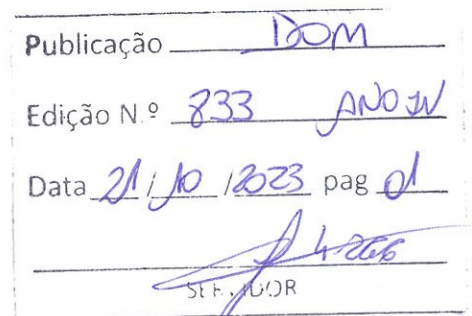 Publicação DOM
Edição N.º 833 ANO IV
Data 21/10/2023 pag 01
SERVIDOR